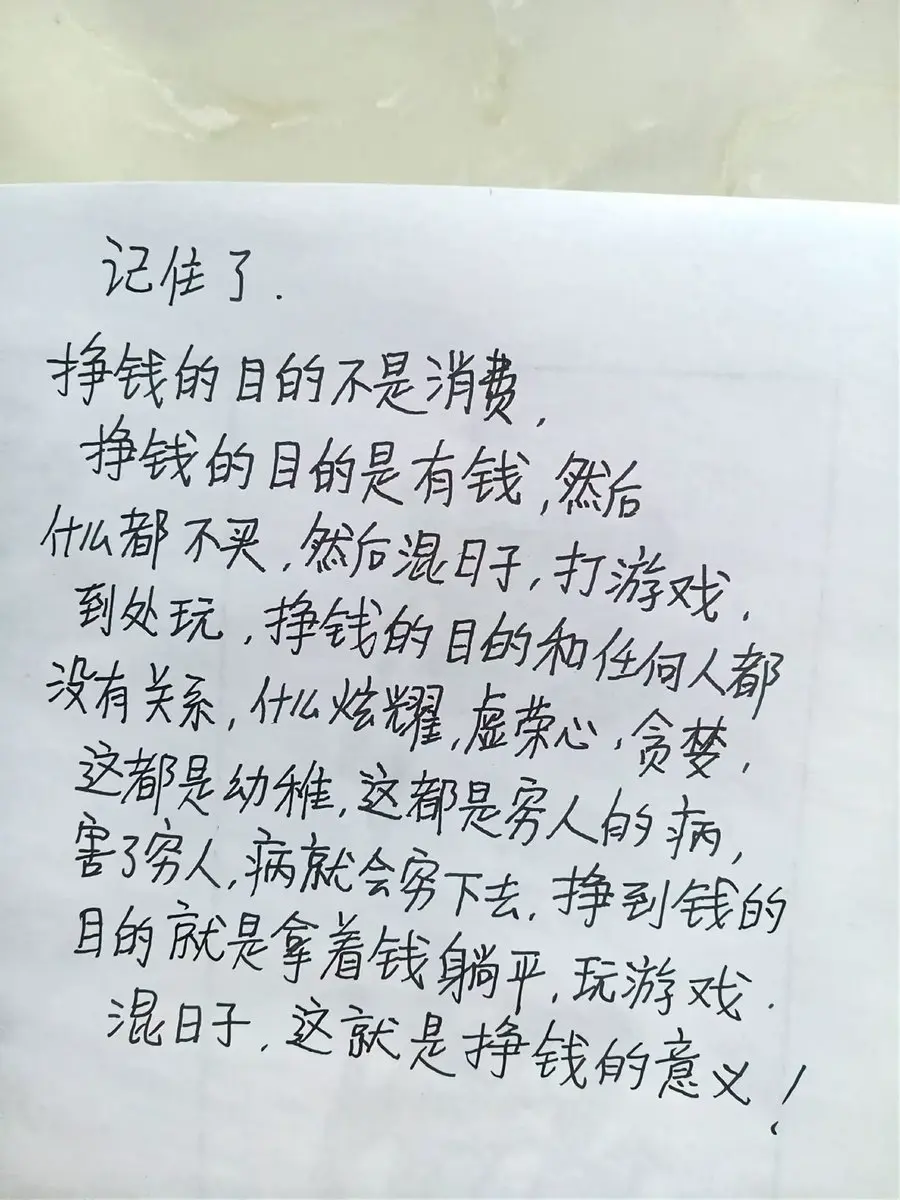 记住了.
挣钱的目的不是消费,
挣钱的目的是有钱,然后
什么都不买,然后混日子,打游戏.
到处玩,挣钱的目的和任何人都
没有关系,什么炫耀,虚荣心,贪婪,
这都是幼稚,这都是穷人的病,
害了穷人,病就会穷下去.挣到钱的
目的就是拿着钱躺平,玩游戏.
混日子,这就是挣钱的意义!